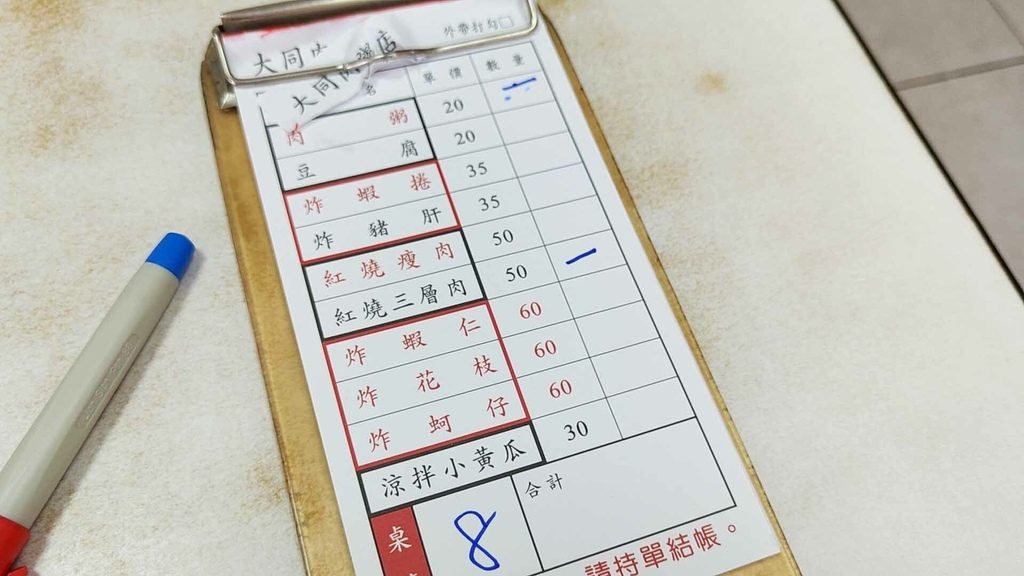 外帶打勾□
大同
大同 店
名 單價 數量
肉粥 20
豆腐 20
炸蝦捲 35
炸豬肝 35
紅燒瘦肉 50
紅燒三層肉 50
炸蝦仁 60
炸花枝 60
炸蚵仔 60
涼拌小黃瓜 30
桌 8 合計
請持單結帳。